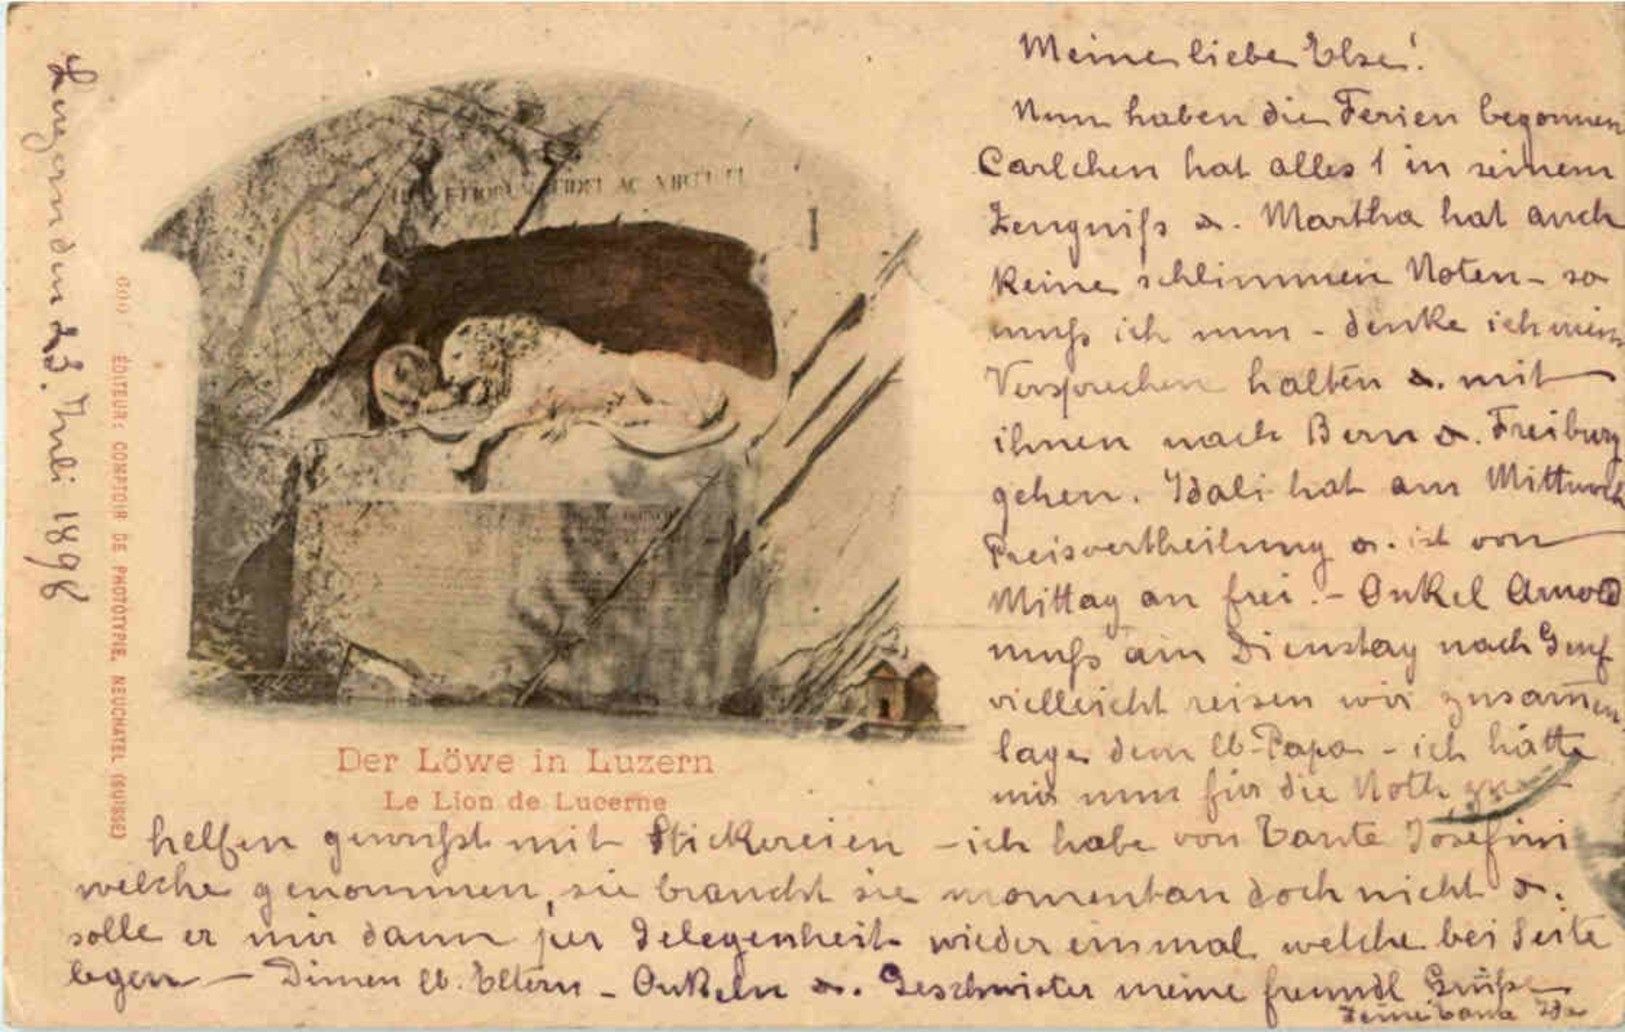 Luzern den 23. Juli 1898
ÉDITEUR: COMPTOIR DE PHOTOTYPIE, NEUCHATEL (SUISSE)
HELVETIORUM FIDEI AC VIRTUTI
Der Löwe in Luzern
Le Lion de Lucerne
Meine liebe Else!
Nun haben die Ferien begonnen
Carlchen hat alles 1 in seinem
Zeugniß u. Martha hat auch
keine schlimmen Noten – so
muß ich nun – denke ich mein
Versprechen halten u. mit
ihnen nach Bern u. Freiburg
gehen. Idali hat am Mittwoch
Preisvertheilung u. ist von
Mittag an frei. – Onkel Arnold
muß am Dienstag nach Genf
vielleicht reisen wir zusammen
sage dem lb. Papa – ich hätte
mir nun für die Noth zu
helfen gewußt mit Stickereien – ich habe von Tante Josefini
welche genommen, sie braucht sie momentan doch nicht u.
solle er mir dann per Gelegenheit wieder einmal welche bei Seite
legen – Deinen lb. Eltern – Onkeln u. Geschwister meine freundl Grüße
Deine Tante Ida